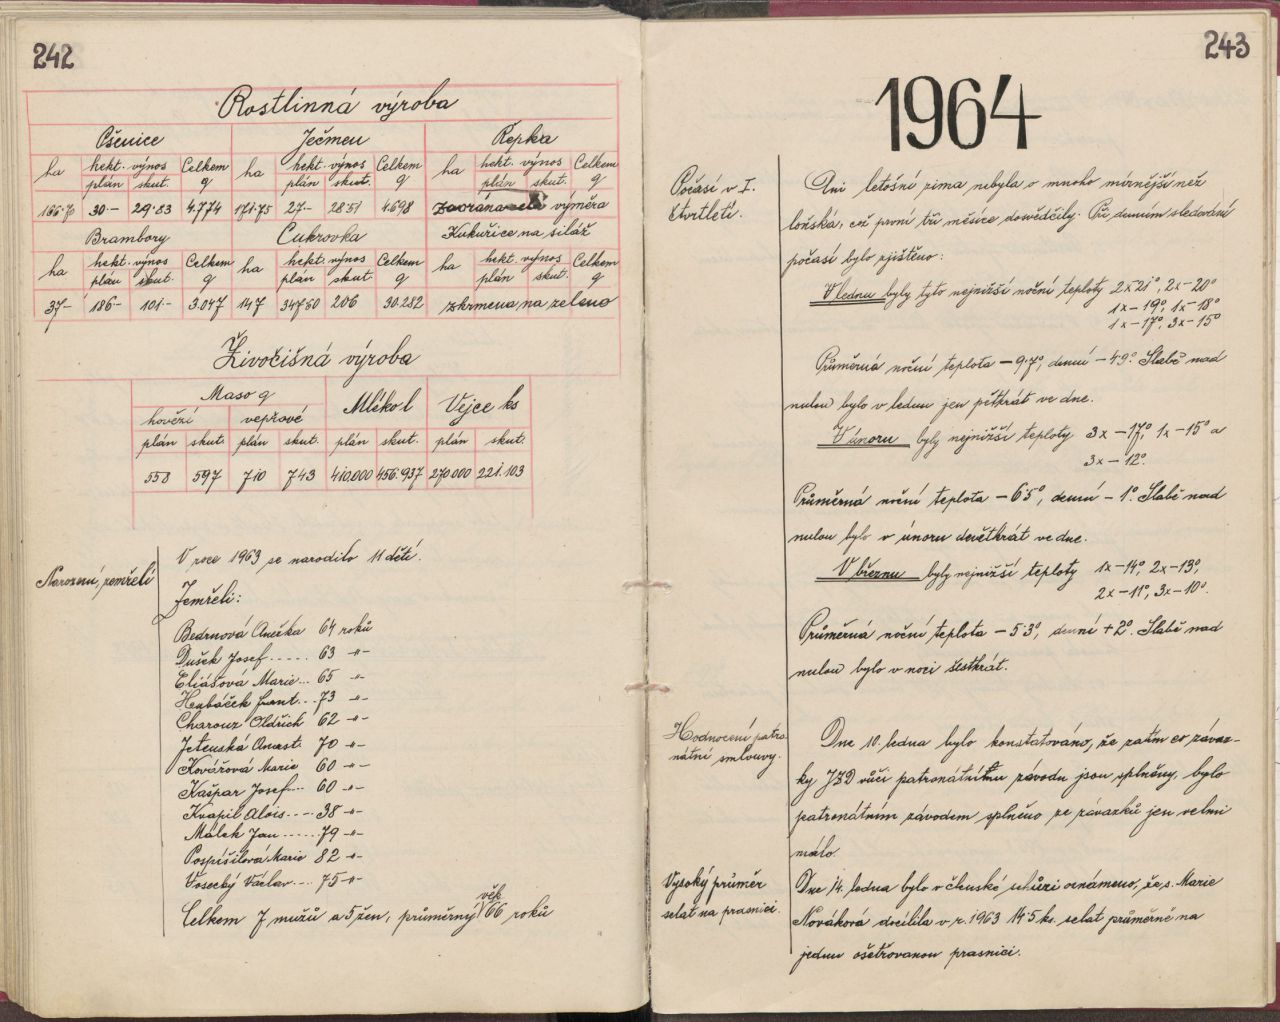 242
Rostlinná výroba
Pšenice Ječmen Řepka
ha hekt. výnos Celkem ha hekt. výnos Celkem ha hekt. výnos Celkem
plán skut. q plán skut. q plán skut. q
30.- 29.83 4.774 171.75 27.- 28.51 4.698 výměra
Brambory Cukrovka Kukuřice na siláž
ha hekt. výnos Celkem ha hekt. výnos Celkem ha hekt. výnos Celkem
plán skut. q plán skut. q plán skut. q
37.- 186.- 101.- 3.047 147 347.50 206 30.282 zkrmena na zeleno
Živočišná výroba
Maso q Mléko l Vejce ks
hovězí vepřové
plán skut. plán skut. plán skut. plán skut.
558 597 710 743 410.000 456.937 270.000 221.103
Narození, zemřelí
V roce 1963 se narodilo 11 dětí.
Zemřeli:
Bedrnová Anežka 64 roků
Dušek Josef ..... 63 -"-
Eliášová Marie... 65 -"-
Hubáček Frant... 73 -"-
Charouz Oldřich 62 -"-
Jetenská Anast. 70 -"-
Kovářová Marie 60 -"-
Kašpar Josef... 60 -"-
Kvapil Alois.... 38 -"-
Málek Jan ...... 79 -"-
Pospíšilová Marie 82 -"-
Vosecký Václav.... 75 -"-
Celkem 7 mužů a 5 žen, průměrný věk 66 roků
243
1964
Počasí v I.
čtvrtletí.
Ani letošní zima nebyla o mnoho mírnější než
loňská, což první tři měsíce dosvědčily. Při denním sledování
počasí bylo zjištěno:
V lednu byly tyto nejnižší noční teploty 2x21°, 2x-20°
1x-19°, 1x-18°
1x-17°, 3x-15°
Průměrná noční teplota -9.7°, denní -4.9°. Slabě nad
nulou bylo v lednu jen pětkrát ve dne.
V únoru byly nejnižší teploty 3x-17°, 1x-15° a
3x-12°.
Průměrná noční teplota -6.5°, denní -1°. Slabě nad
nulou bylo v únoru devětkrát ve dne.
V březnu byly nejnižší teploty 1x-14°, 2x-13°,
2x-11°, 3x-10°.
Průměrná noční teplota -5.3°, denní +2°. Slabě nad
nulou bylo v noci šestkrát.
Hodnocení patro-
nátní smlouvy.
Dne 10. ledna bylo konstatováno, že zatím co závaz-
ky JZD vůči patronátnímu závodu jsou splněny, bylo
patronátním závodem splněno ze závazků jen velmi
málo.
Vysoký průměr
selat na prasnici.
Dne 14. ledna bylo v členské schůzi oznámeno, že s. Marie
Nováková docílila v r. 1963 14.5 ks. selat průměrně na
jednu ošetřovanou prasnici.